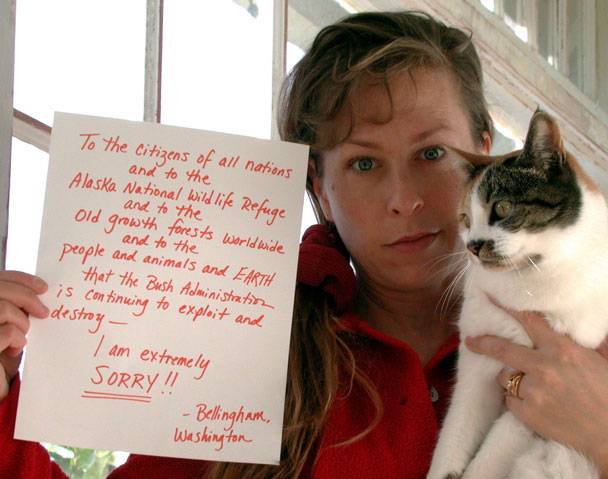 To the citizens of all nations
and to the
Alaska National Wildlife Refuge
and to the
Old growth forests worldwide
and to the
people and animals and EARTH
that the Bush Administration
is continuing to exploit and
destroy—
I am extremely
SORRY!!
- Bellingham,
Washington